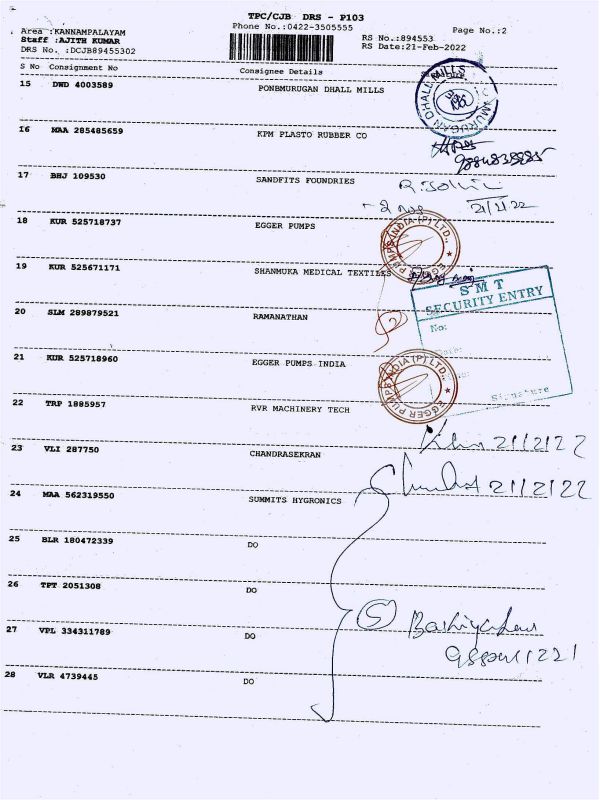 TPC/CJB DRS - P103
Area :KANNAMPALAYAM
Phone No.:0422-3505555
Page No.:2
Staff :AJITH KUMAR
RS No.:894553
DRS No. :DCJB89455302
RS Date:21-Feb-2022
S No Consignment No Consignee Details
15 DWD 4003589 PONBMURUGAN DHALL MILLS
16 MAA 285485659 KPM PLASTO RUBBER CO
17 BHJ 109530 SANDFITS FOUNDRIES
18 KUR 525718737 EGGER PUMPS
EGGER PUMPS INDIA (P) LTD.,
19 KUR 525671171 SHANMUKA MEDICAL TEXTILES
SMT
SECURITY ENTRY
No:
Signature
20 SLM 289879521 RAMANATHAN
21 KUR 525718960 EGGER PUMPS INDIA
EGGER PUMPS INDIA (P) LTD.,
22 TRP 1885957 RVR MACHINERY TECH
21/2/22
23 VLI 287750 CHANDRASEKRAN
21/2/22
24 MAA 562319550 SUMMITS HYGRONICS
25 BLR 180472339 DO
26 TPT 2051308 DO
5
27 VPL 334311789 DO
28 VLR 4739445 DO